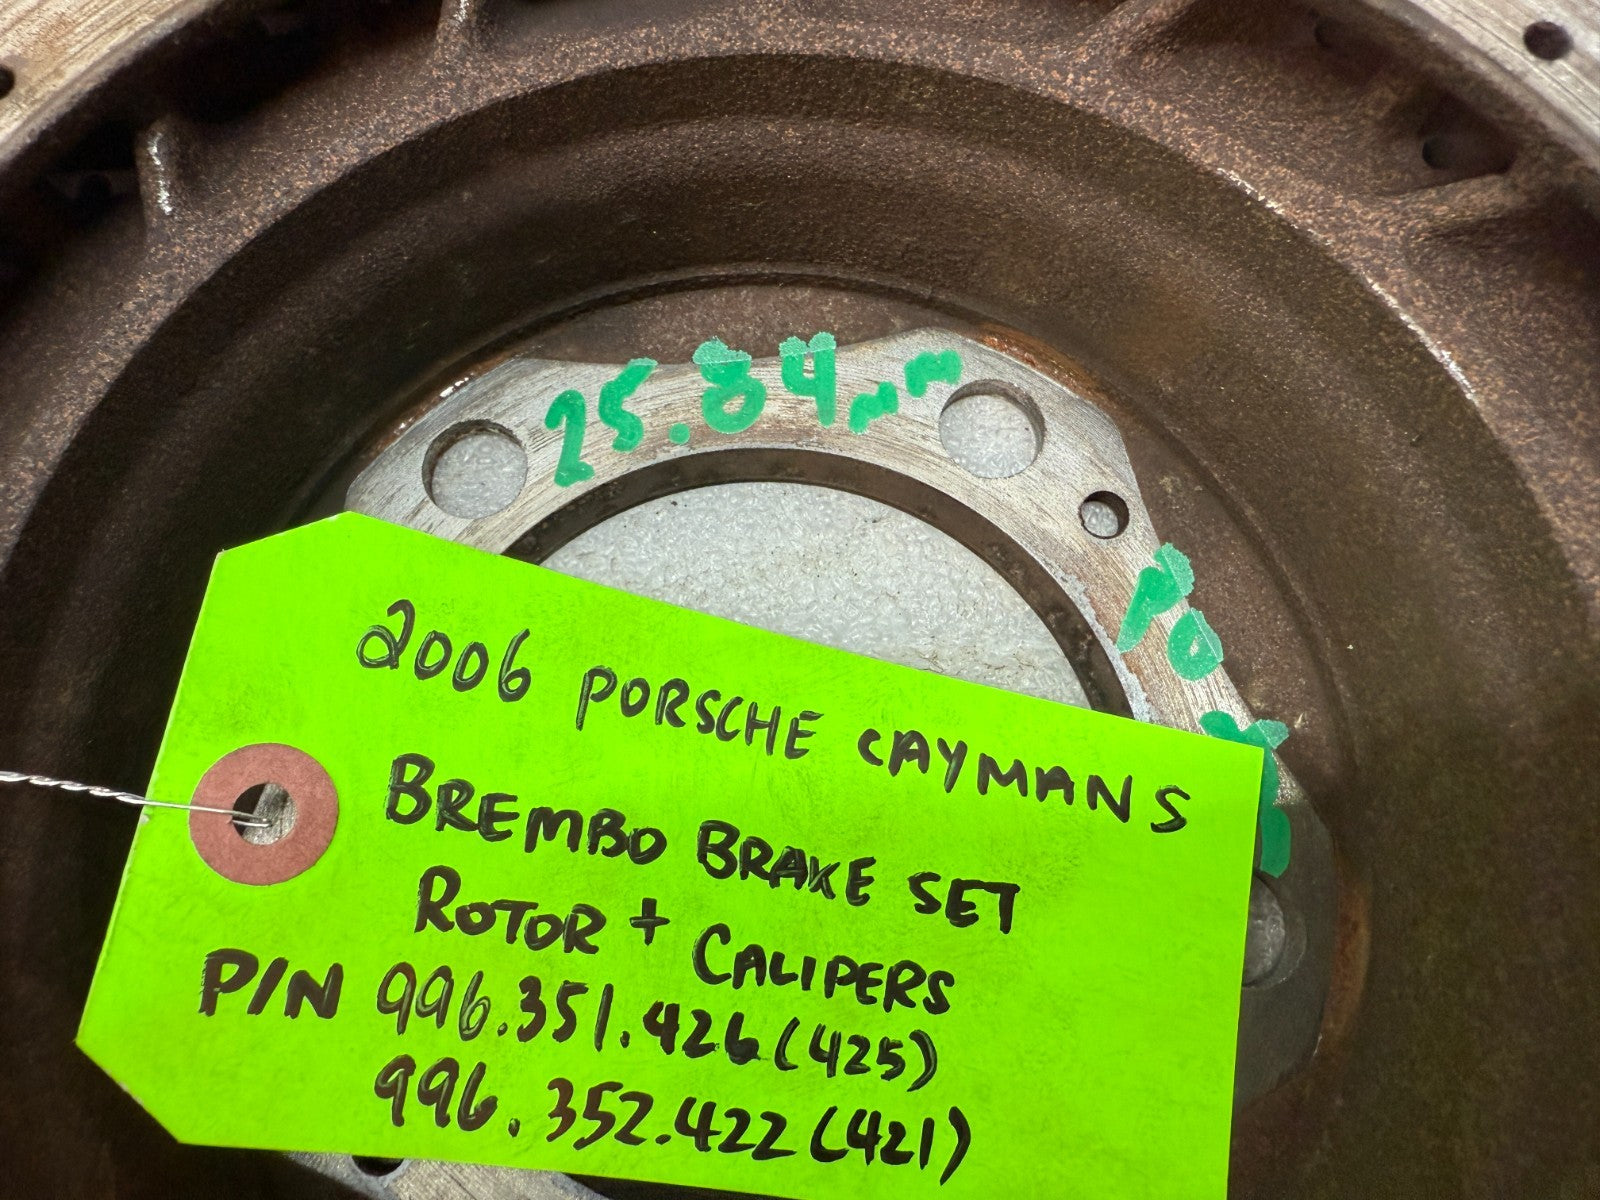 25.84mm
2006 PORSCHE CAYMAN S
BREMBO BRAKE SET
ROTOR + CALIPERS
P/N 996.351.426 (425)
996.352.422 (421)